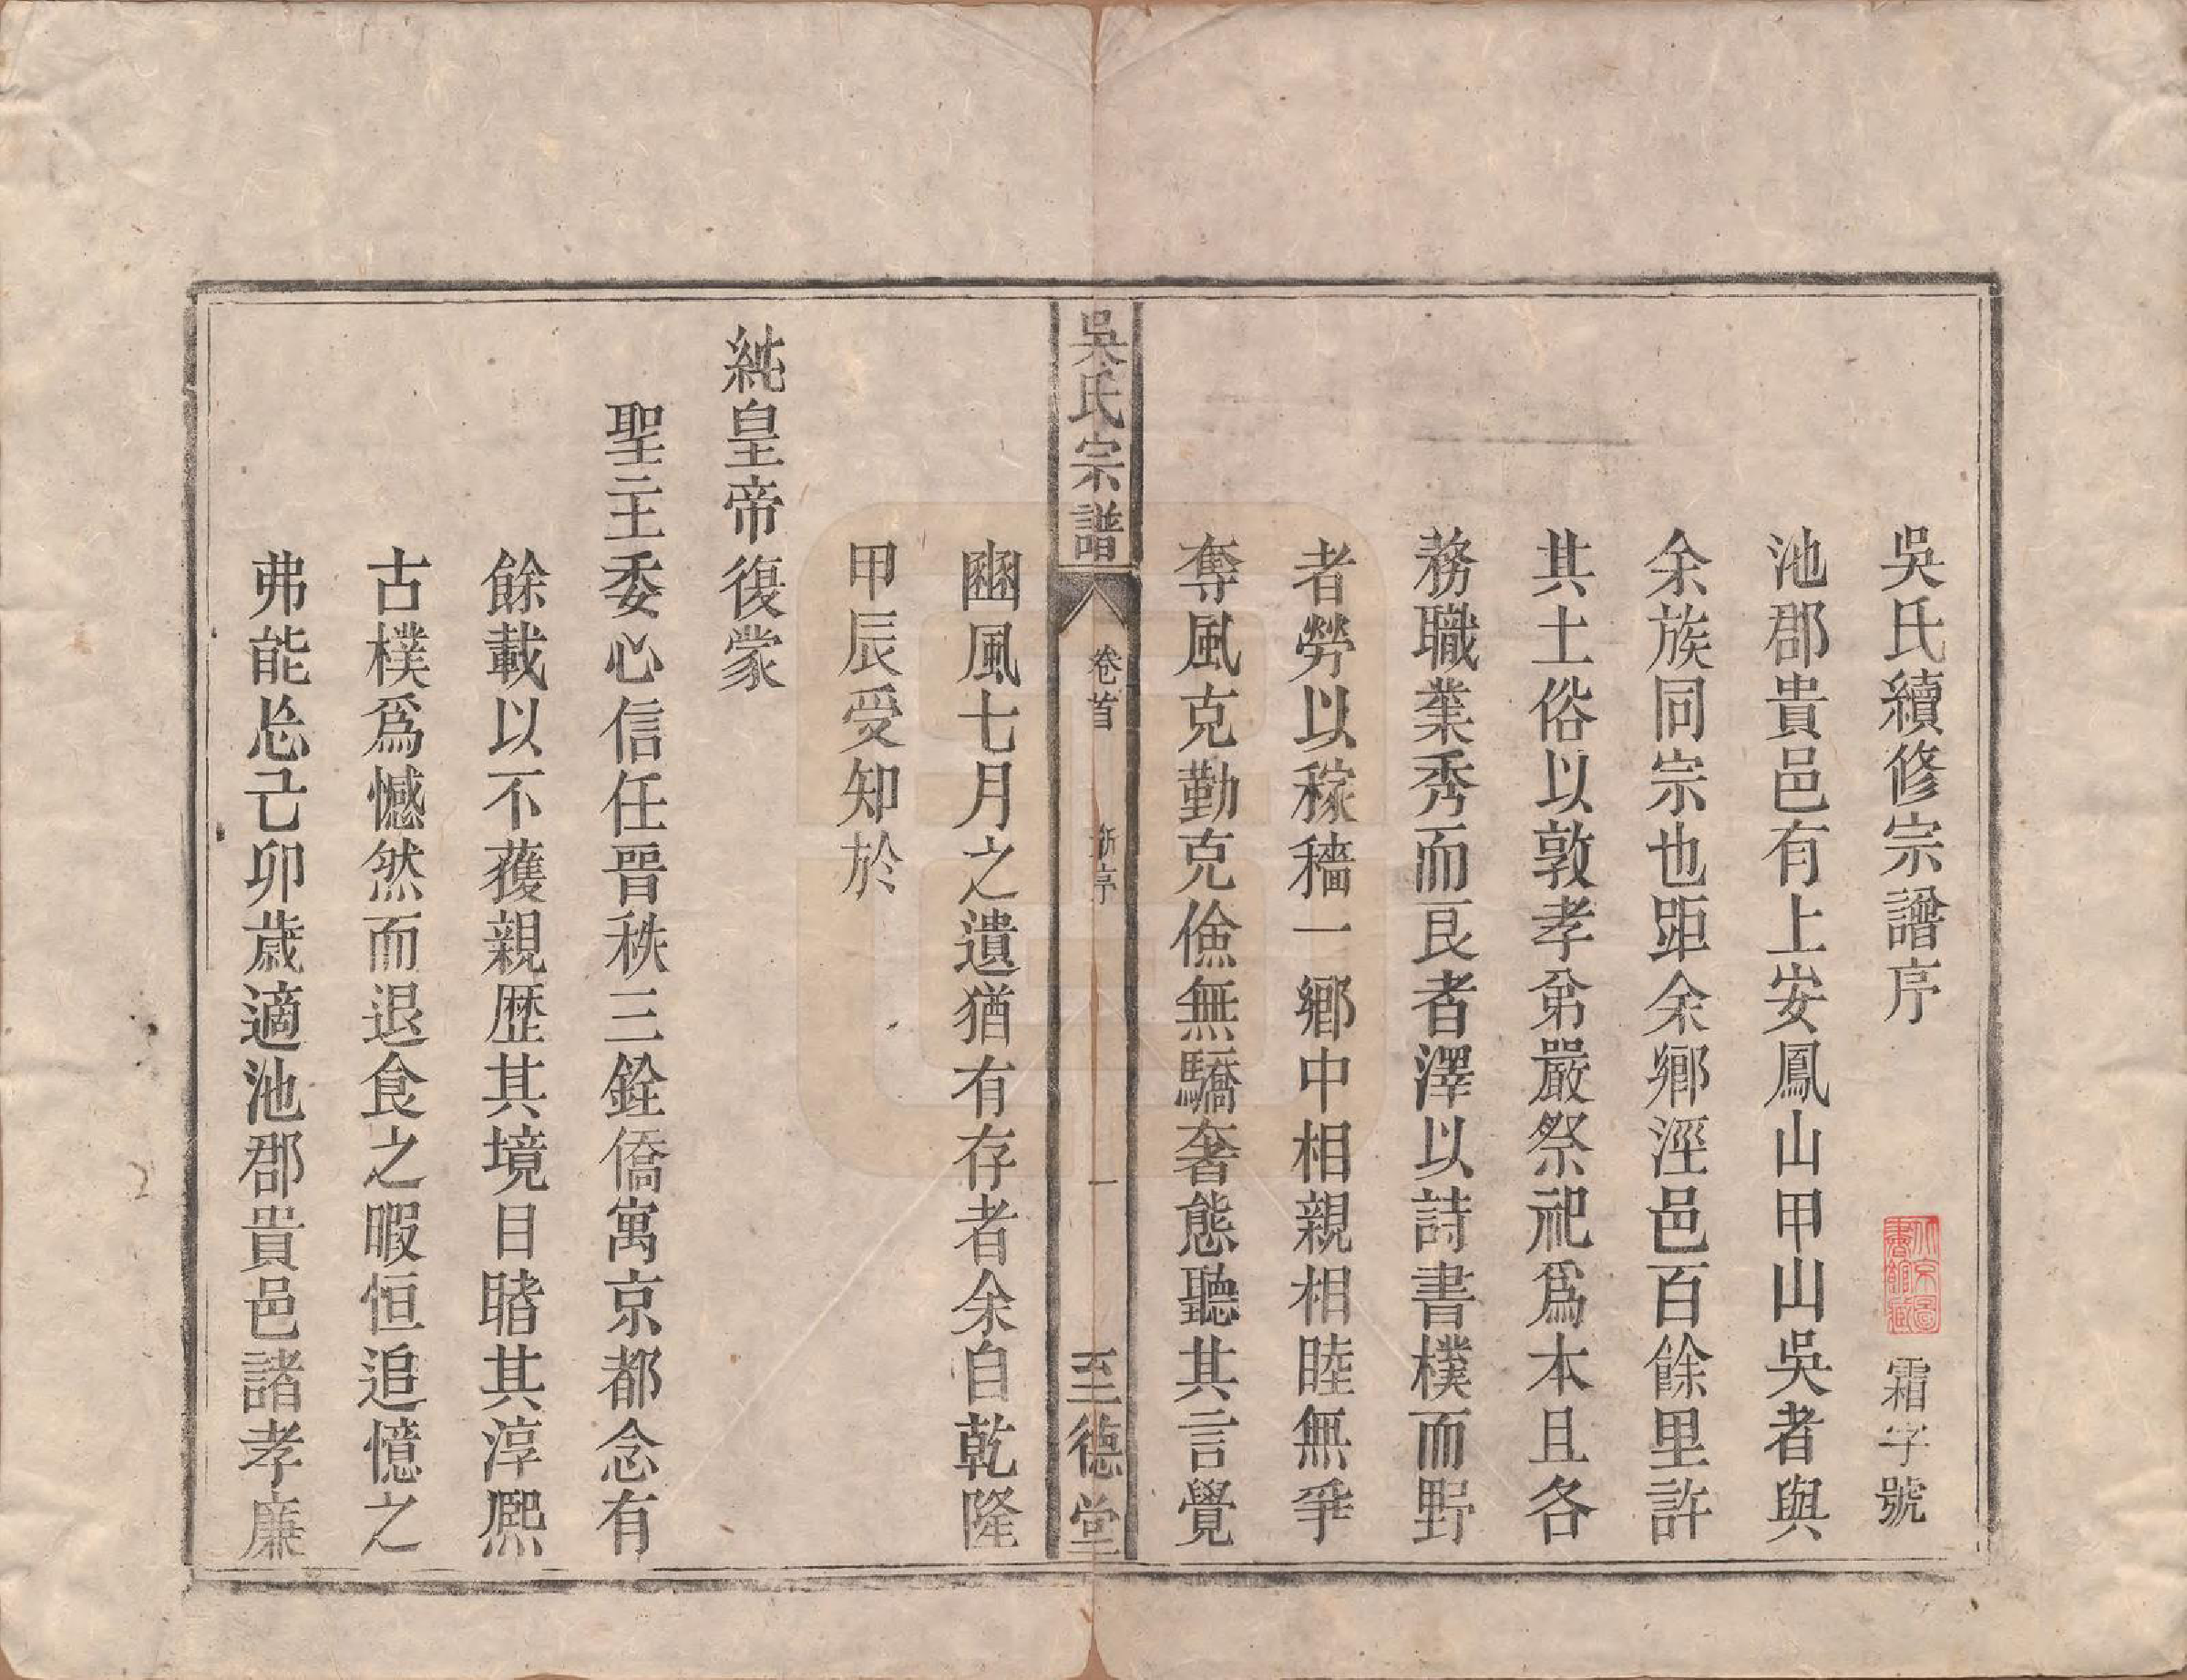 吳氏續修宗譜序
北京圖書館藏
霜字號
池郡貴邑有上安鳳山甲山吳者與
余族同宗也距余鄉涇邑百餘里許
其土俗以敦孝弟嚴祭祀爲本且各
務職業秀而良者澤以詩書樸而野
者勞以稼穡一鄉中相親相睦無爭
奪風克勤克儉無驕奢態聽其言覺
吳氏宗譜
卷首
新序
一
至德堂
豳風七月之遺猶有存者余自乾隆
甲辰受知於
純皇帝復蒙
聖主委心信任晉秩三銓僑寓京都念有
餘載以不獲親歴其境目睹其淳熙
古樸爲憾然而退食之暇恒追憶之
弗能忘己卯歲適池郡貴邑諸孝廉